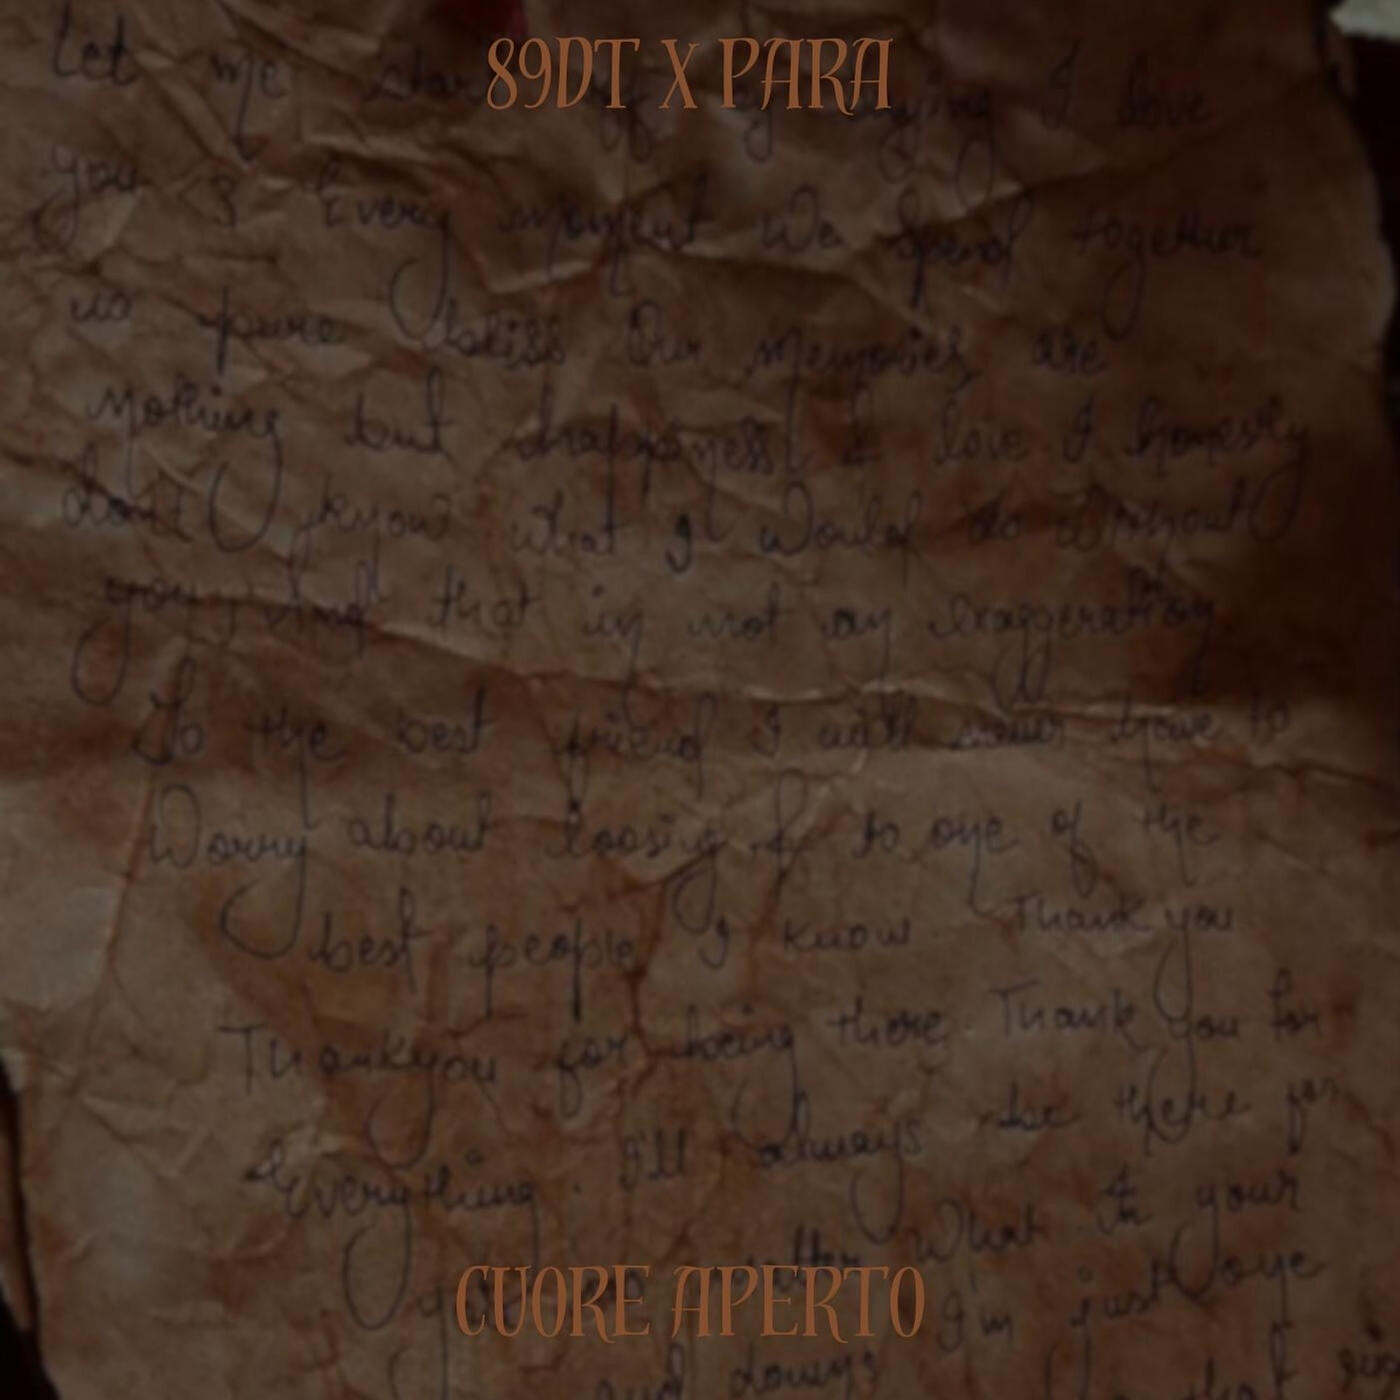 89DT X PARA
Let me start off by saying I love
you <3 Every moment We spend together
is pure bliss Our Memories are
nothing but happyness! I love I honestly
don't know what I Would do without
you, and that is not an exaggeration
To the best friend I will have to
Worry about loosing. & to one of the
best people I know Thank you
Thankyou for being there. Thank you for
Everything. I'll always be there for
What In your
CUORE APERTO
I'm just one
and downs